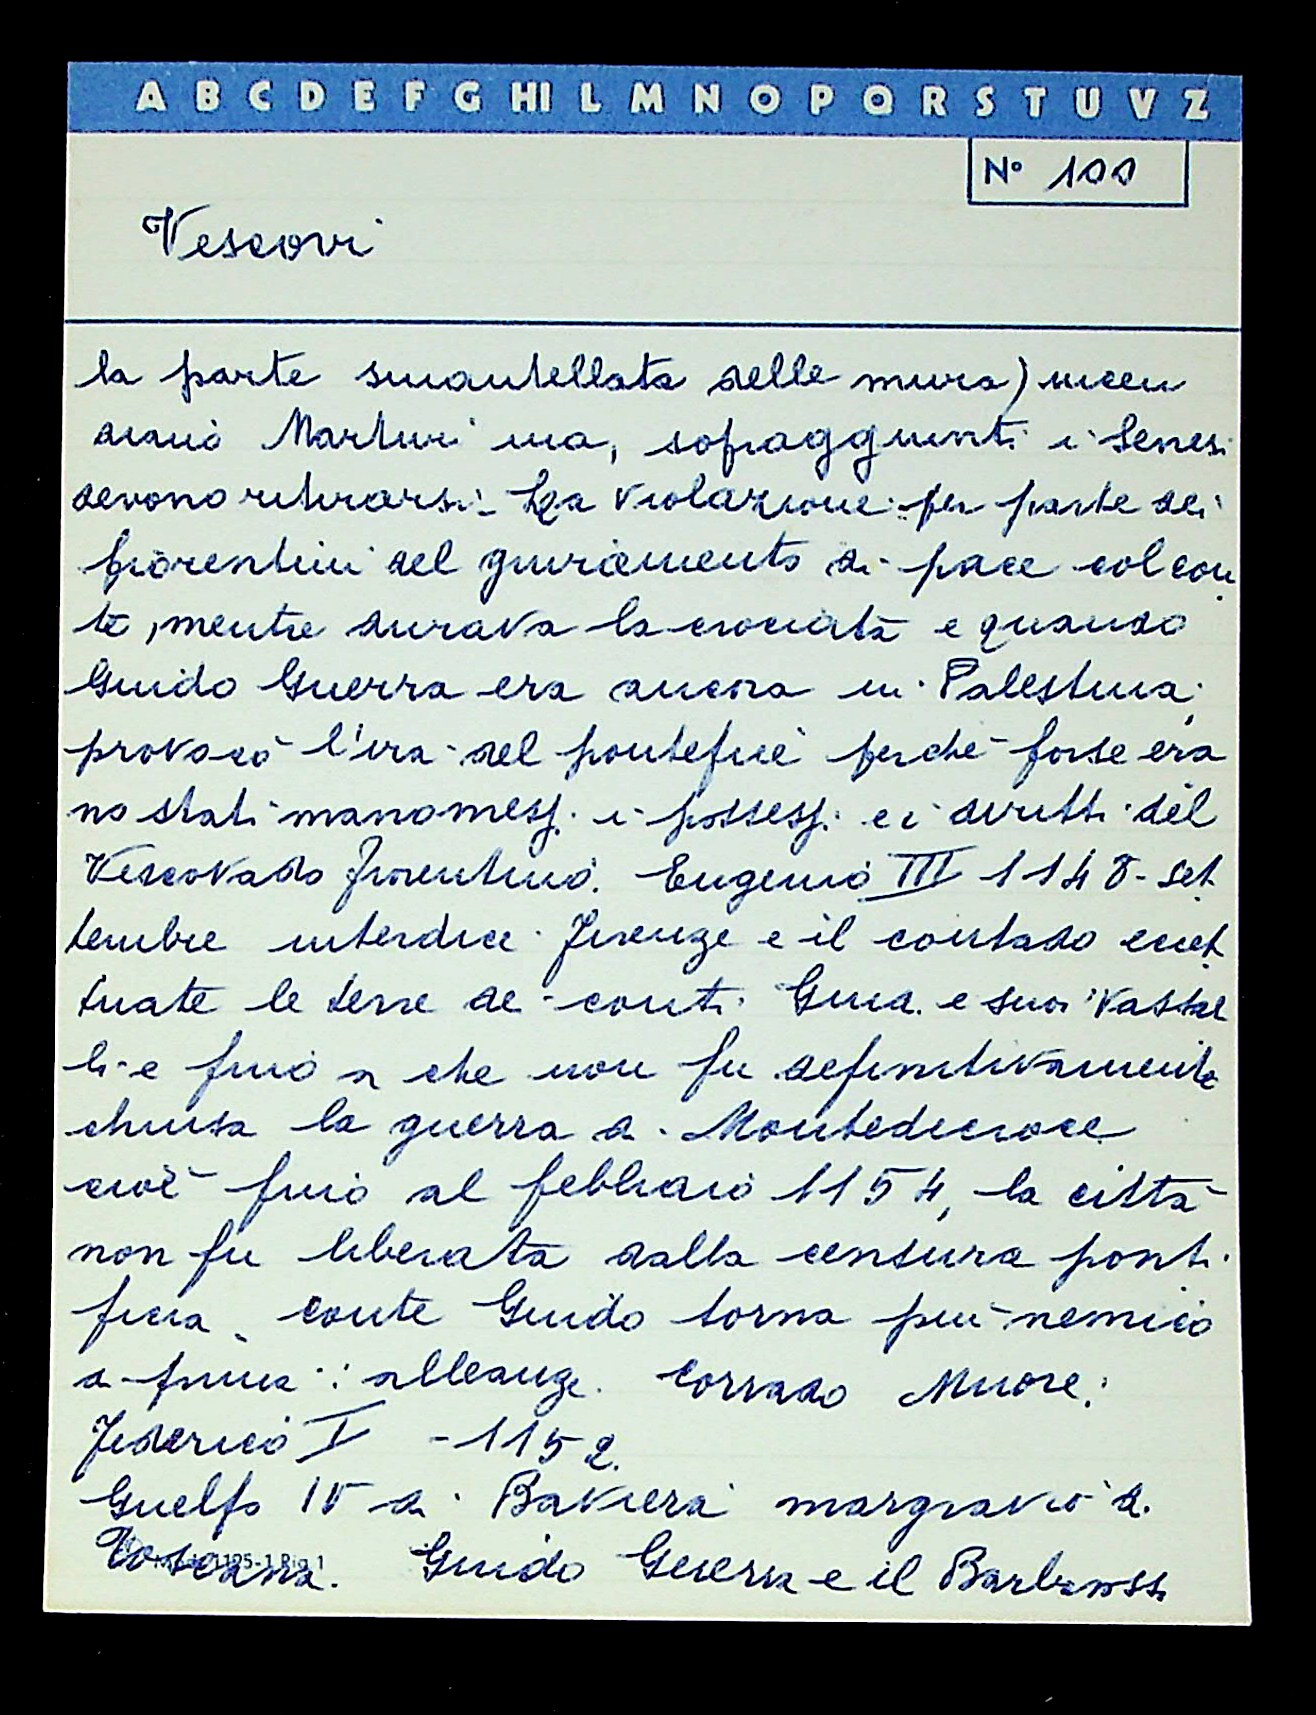 A B C D E F G HI L M N O P Q R S T U V Z
N° 100
Vescovi
la parte smantellata delle mura) incen
diano Marturi ma, sopraggiunti i Senesi
devono ritirarsi. La violazione per parte dei
fiorentini del giuramento di pace col con
te, mentre durava la crociata e quando
Guido Guerra era ancora in Palestina,
provocò l'ira del pontefice perchè forse era
no stati manomessi i possessi e i diritti del
Vescovado fiorentino. Eugenio III 1148 - set
tembre interdice Firenze e il contado eccet
tuate le terre de conti Guid. e suoi vassal
li e fino a che non fu definitivamente
chiusa la guerra di Montedicroce
cioè fino al febbraio 1154, la città
non fu liberata dalla censura ponti
ficia. conte Guido torna più nemico
di prima: alleanze. Corrado muore.
Federico I - 1152.
Guelfo IV di Baviera margravio di
Toscana. Guido Guerra e il Barbarossa
1125-1 Rig.1